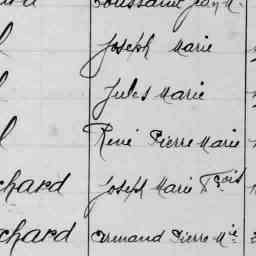 Toussaint Jean M.
Joseph Marie
Jules Marie
René Pierre Marie
chard Joseph Marie Fçois
chard Armand Pierre Mie